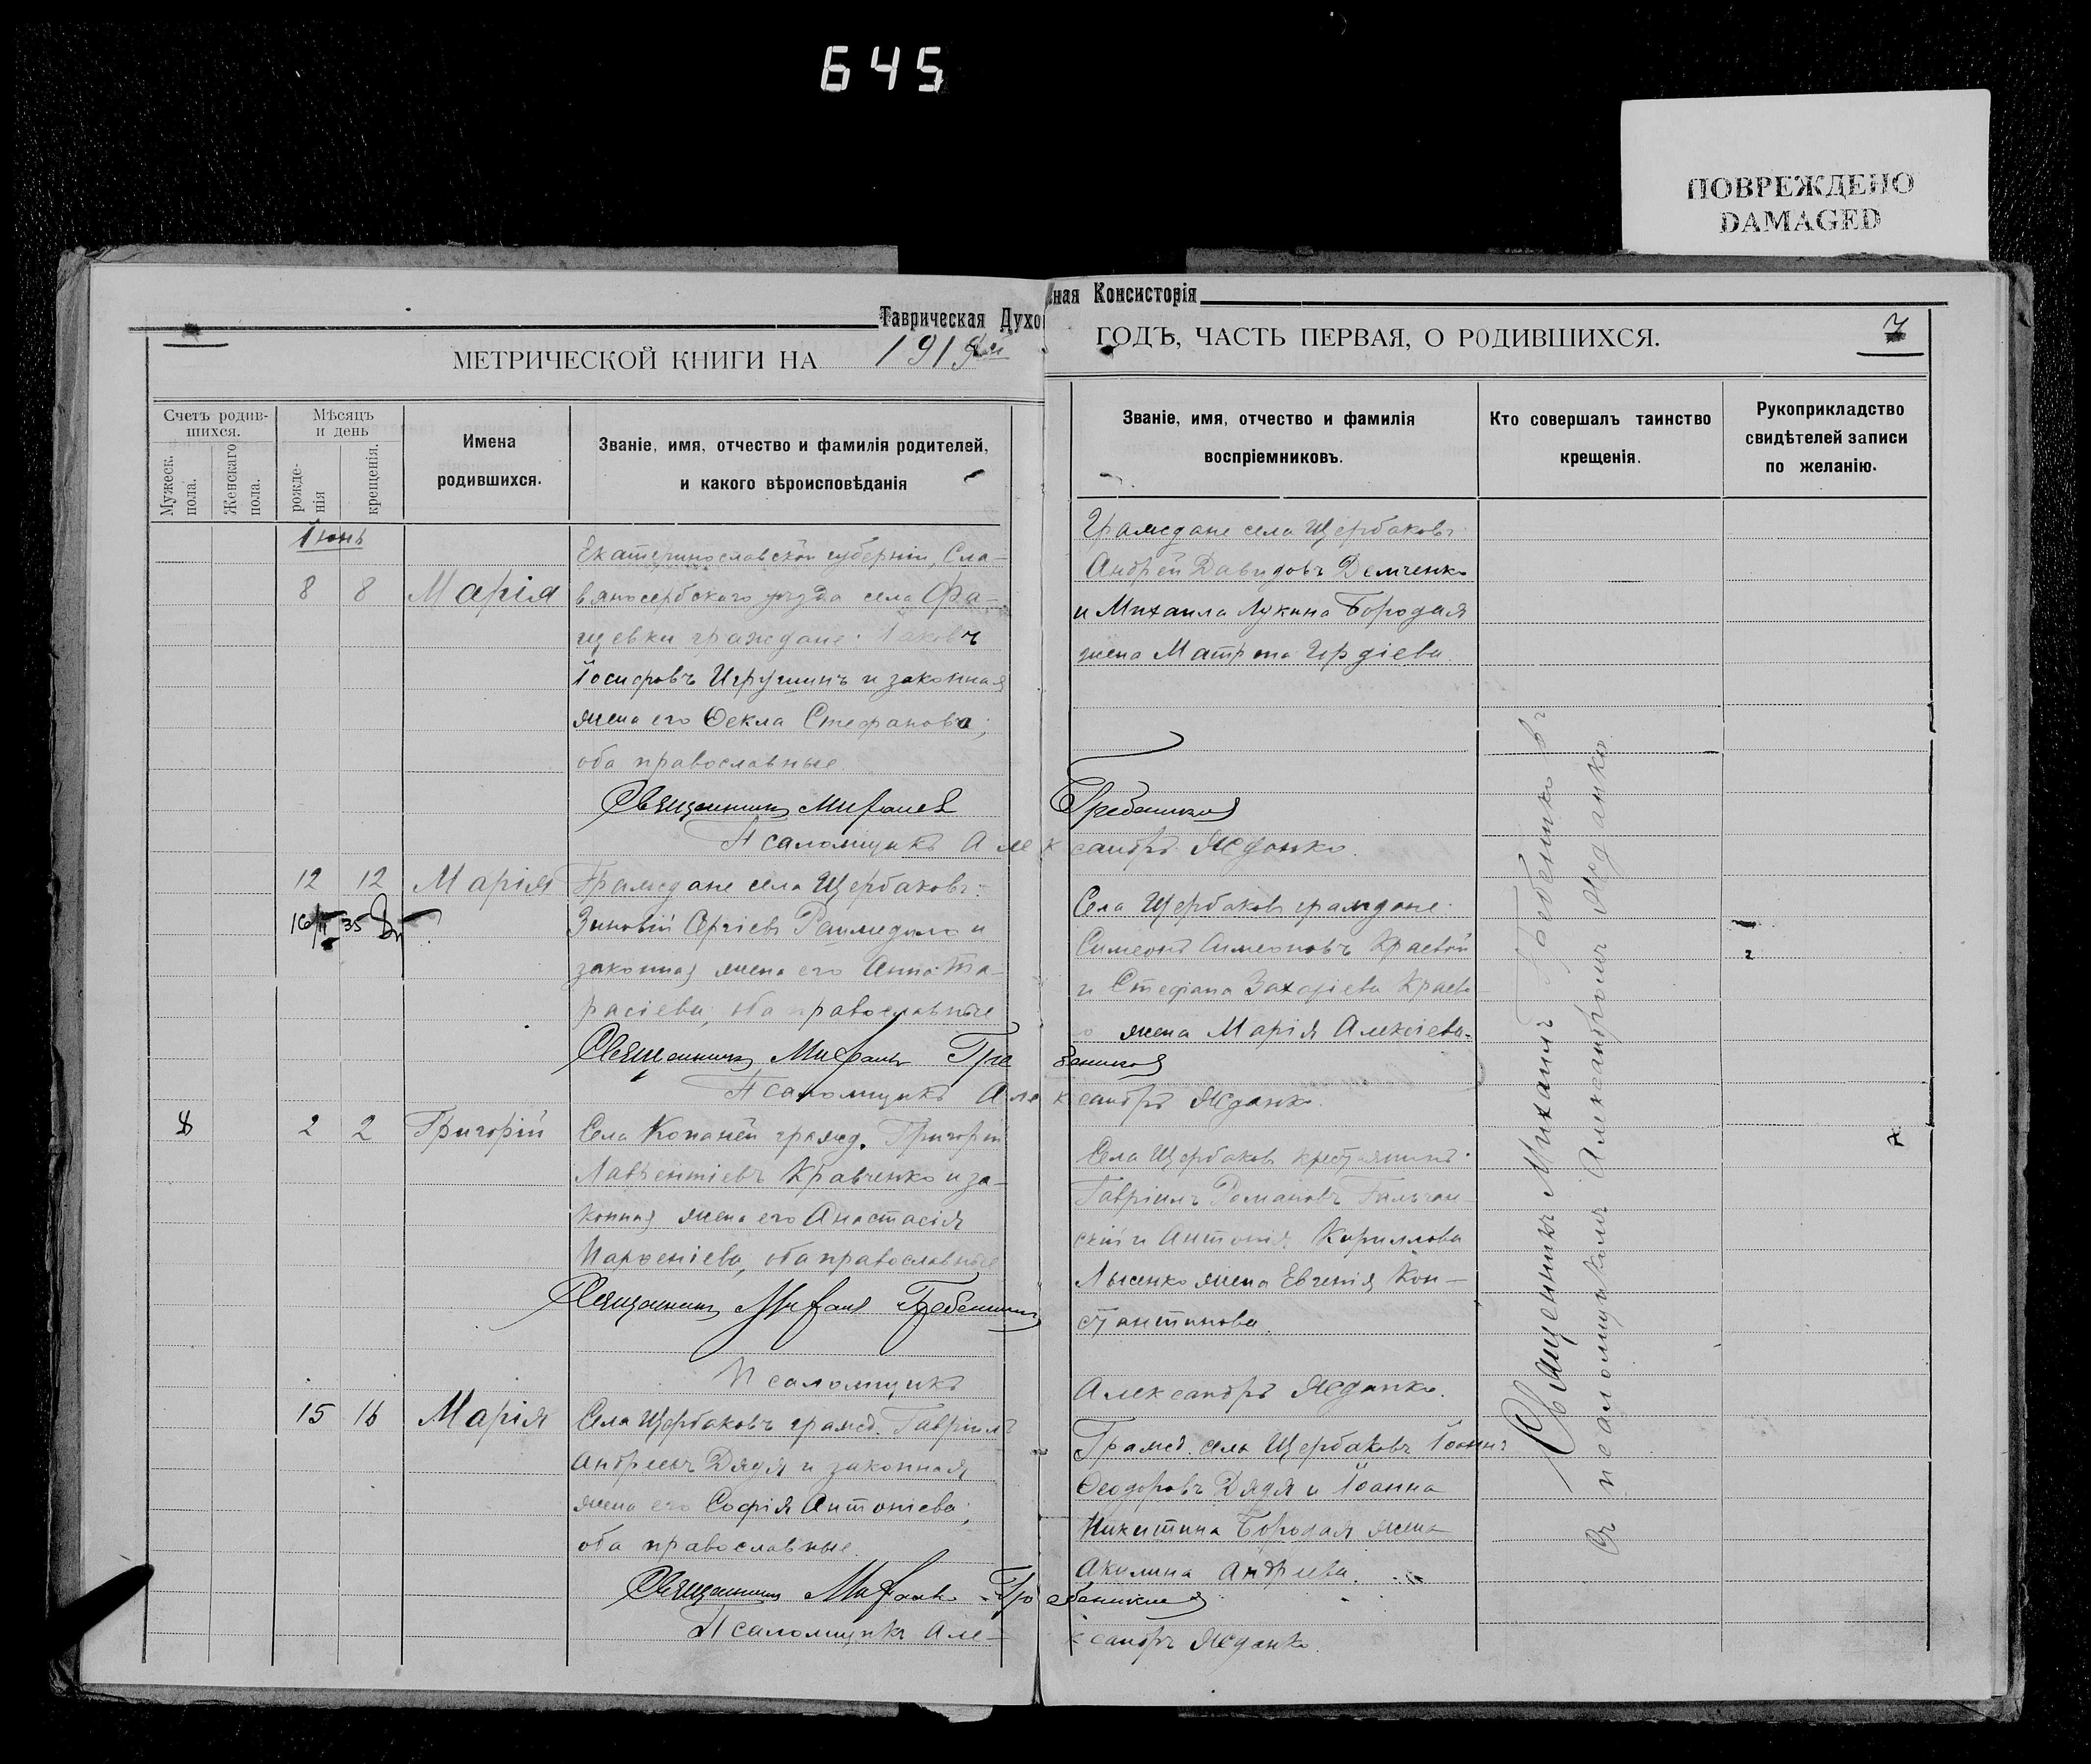 645
ПОВРЕЖДЕНО
DAMAGED
Таврическая Духо
МЕТРИЧЕСКОЙ КНИГИ НА 1919
Счетъ родив-
шихся.
Мужеск. пола.
Женскаго пола.
Мѣсяцъ
и день
рожде-
нія
крещенія.
Имена
родившихся.
Званіе, имя, отчество и фамилія родителей,
и какого вѣроисповѣданія
Іюнь
Екатеринославской губерніи, Сла-
8 8 Марія вяносербскаго уѣзда села Фа-
щевки граждане: Іаковъ
Іосифовъ и законная
жена его Ѳекла Стефанова;
оба православные
Священникъ Михаилъ
Псаломщикъ Алек
12 12 Марія Граждане села Щербаковъ:
16/II 35
Зиновій Сергіевъ и
законная жена его Анна Та-
расіева, оба православные
Священникъ Михаилъ Гре
Псаломщикъ Алек
8 2 2 Григорій Села Копаней гражд. Григорій
Лаврентіевъ Кравченко и за-
конная жена его Анастасія
Парѳеніева, оба православные
Священникъ Михаилъ Гребенниковъ
Псаломщикъ
15 16 Марія Села Щербаковъ гражд. Гавріилъ
Андреевъ Дядя и законная
жена его Софія Антоніева;
оба православные
Священникъ Михаилъ Гр
Псаломщикъ Але-
ная Консисторія
ГОДЪ, ЧАСТЬ ПЕРВАЯ, О РОДИВШИХСЯ.
7
Званіе, имя, отчество и фамилія
воспріемниковъ.
Кто совершалъ таинство
крещенія.
Рукоприкладство
свидѣтелей записи
по желанію.
Граждане села Щербаковъ:
Андрей Давидовъ Демченко
и Михаила Лукина Бородая
жена Матрона Гордіева
Гребенниковъ
сандръ Жданко.
Села Щербаковъ граждане:
Симеонъ Симеоновъ Краевой
и Стефана Захаріева Краево-
го жена Марія Алексіева.
бенниковъ
сандръ Жданко.
Села Щербаковъ крестьянинъ:
Гавріилъ Романовъ
скій и Антонія Кириллова
Лысенко жена Евгенія Кон-
стантинова.
Александръ Жданко.
Гражд. села Щербаковъ Іоаннъ
Ѳеодоровъ Дядя и Іоанна
Никитина Бородая жена
Акилина Андреева.
бенниковъ
ксандръ Жданко.
Священникъ Михаилъ
Съ псаломщикомъ Александромъ Жданко